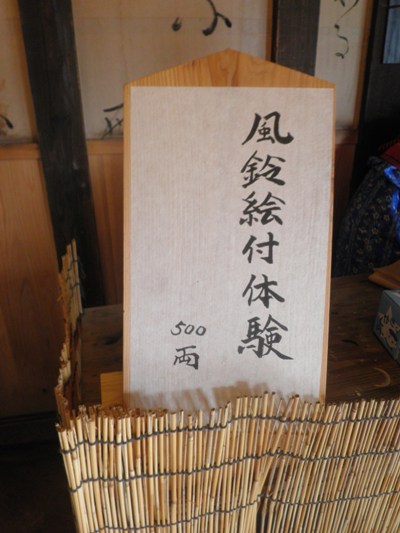 風鈴絵付体験
500両